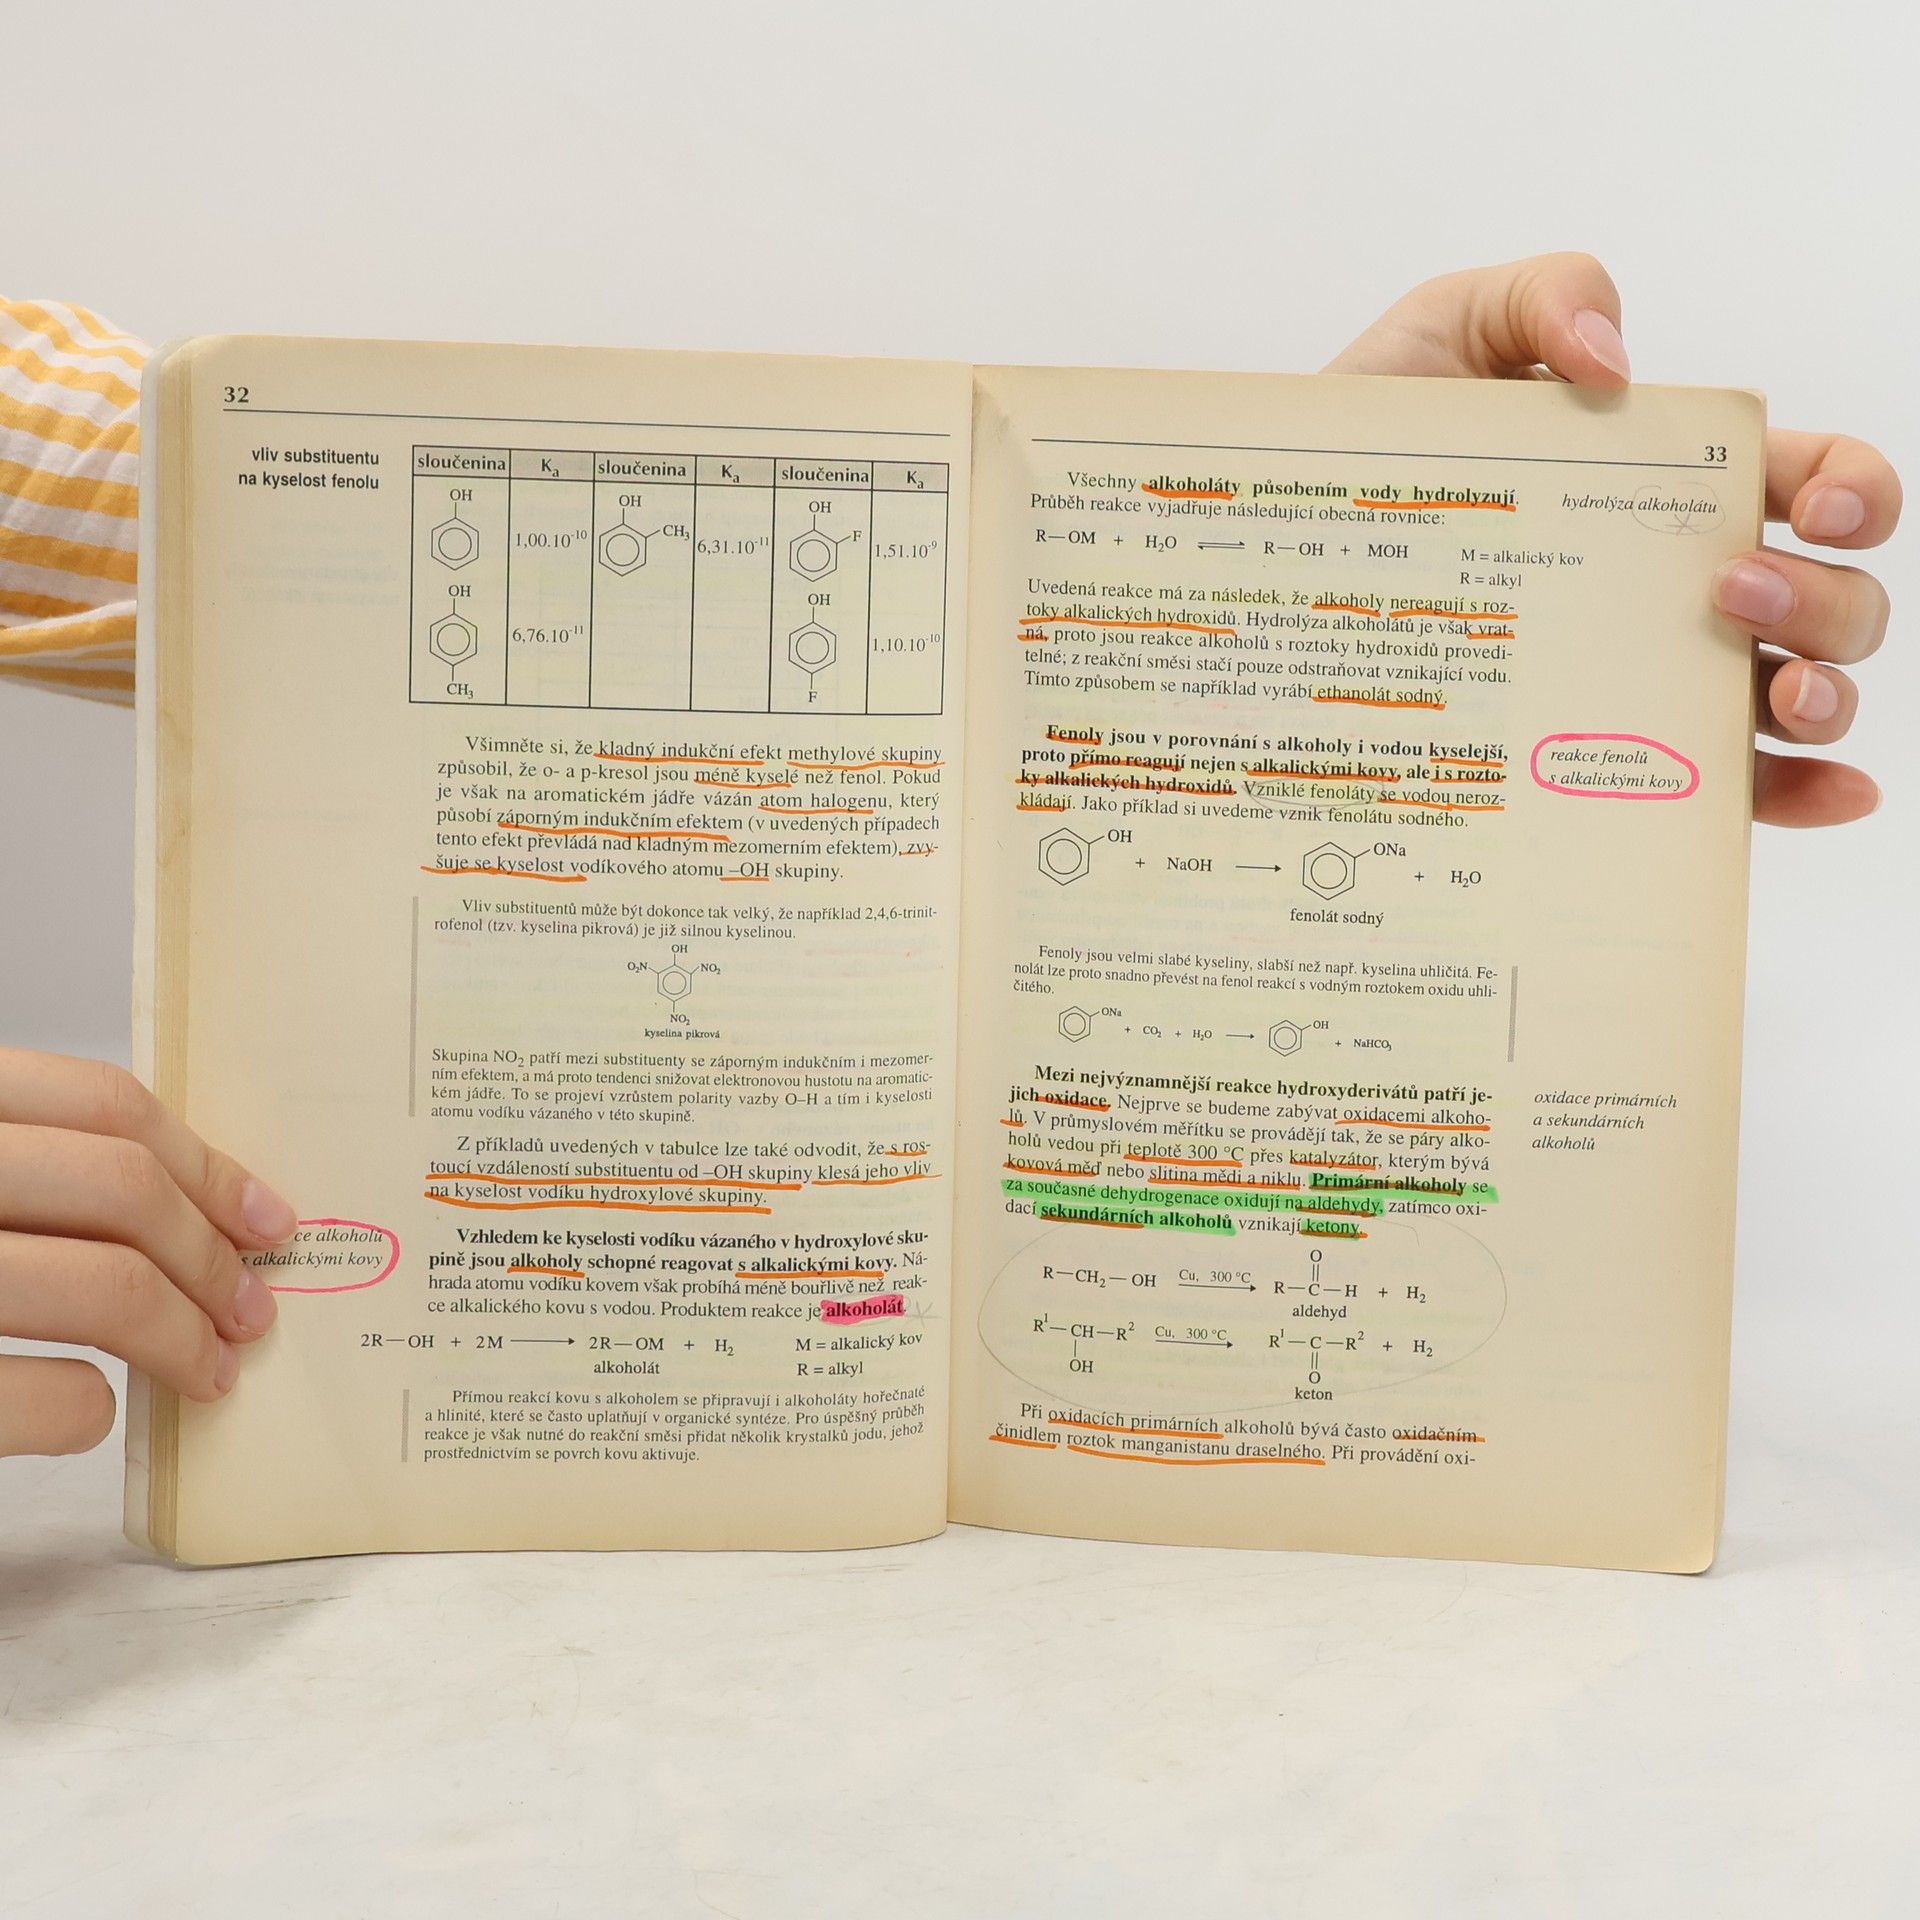 32
vliv substituentu
na kyselost fenolu
sloučenina Ka sloučenina Ka sloučenina Ka
OH OH OH
1,00.10-10 CH3 6,31.10-11 F 1,51.10-9
OH OH
6,76.10-11 1,10.10-10
CH3 F
Všimněte si, že kladný indukční efekt methylové skupiny
způsobil, že o- a p-kresol jsou méně kyselé než fenol. Pokud
je však na aromatickém jádře vázán atom halogenu, který
působí záporným indukčním efektem (v uvedených případech
tento efekt převládá nad kladným mezomerním efektem), zvy-
šuje se kyselost vodíkového atomu –OH skupiny.
Vliv substituentů může být dokonce tak velký, že například 2,4,6-trinit-
rofenol (tzv. kyselina pikrová) je již silnou kyselinou.
OH
O2N NO2
NO2
kyselina pikrová
Skupina NO2 patří mezi substituenty se záporným indukčním i mezomer-
ním efektem, a má proto tendenci snižovat elektronovou hustotu na aromatic-
kém jádře. To se projeví vzrůstem polarity vazby O–H a tím i kyselosti
atomu vodíku vázaného v této skupině.
Z příkladů uvedených v tabulce lze také odvodit, že s ros-
toucí vzdáleností substituentu od –OH skupiny klesá jeho vliv
na kyselost vodíku hydroxylové skupiny.
ce alkoholů
s alkalickými kovy
Vzhledem ke kyselosti vodíku vázaného v hydroxylové sku-
pině jsou alkoholy schopné reagovat s alkalickými kovy. Ná-
hrada atomu vodíku kovem však probíhá méně bouřlivě než reak-
ce alkalického kovu s vodou. Produktem reakce je alkoholát.
2R—OH + 2M → 2R—OM + H2 M = alkalický kov
alkoholát R = alkyl
Přímou reakcí kovu s alkoholem se připravují i alkoholáty hořečnaté
a hlinité, které se často uplatňují v organické syntéze. Pro úspěšný průběh
reakce je však nutné do reakční směsi přidat několik krystalků jodu, jehož
prostřednictvím se povrch kovu aktivuje.
33
Všechny alkoholáty působením vody hydrolyzují.
Průběh reakce vyjadřuje následující obecná rovnice:
hydrolýza alkoholátu
R—OM + H2O ⇌ R—OH + MOH M = alkalický kov
R = alkyl
Uvedená reakce má za následek, že alkoholy nereagují s roz-
toky alkalických hydroxidů. Hydrolýza alkoholátů je však vrat-
ná, proto jsou reakce alkoholů s roztoky hydroxidů provedi-
telné; z reakční směsi stačí pouze odstraňovat vznikající vodu.
Tímto způsobem se například vyrábí ethanolát sodný.
Fenoly jsou v porovnání s alkoholy i vodou kyselejší,
proto přímo reagují nejen s alkalickými kovy, ale i s rozto-
ky alkalických hydroxidů. Vzniklé fenoláty se vodou neroz-
kládají. Jako příklad si uvedeme vznik fenolátu sodného.
reakce fenolů
s alkalickými kovy
OH + NaOH → ONa + H2O
fenolát sodný
Fenoly jsou velmi slabé kyseliny, slabší než např. kyselina uhličitá. Fe-
nolát lze proto snadno převést na fenol reakcí s vodným roztokem oxidu uhli-
čitého.
ONa + CO2 + H2O → OH + NaHCO3
Mezi nejvýznamnější reakce hydroxyderivátů patří je-
jich oxidace. Nejprve se budeme zabývat oxidacemi alkoho-
lů. V průmyslovém měřítku se provádějí tak, že se páry alko-
holů vedou při teplotě 300 °C přes katalyzátor, kterým bývá
kovová měď nebo slitina mědi a niklu. Primární alkoholy se
za současné dehydrogenace oxidují na aldehydy, zatímco oxi-
dací sekundárních alkoholů vznikají ketony.
oxidace primárních
a sekundárních
alkoholů
O
R—CH2—OH Cu, 300 °C → R—C—H + H2
aldehyd
R1—CH—R2 Cu, 300 °C → R1—C—R2 + H2
OH O
keton
Při oxidacích primárních alkoholů bývá často oxidačním
činidlem roztok manganistanu draselného. Při provádění oxi-